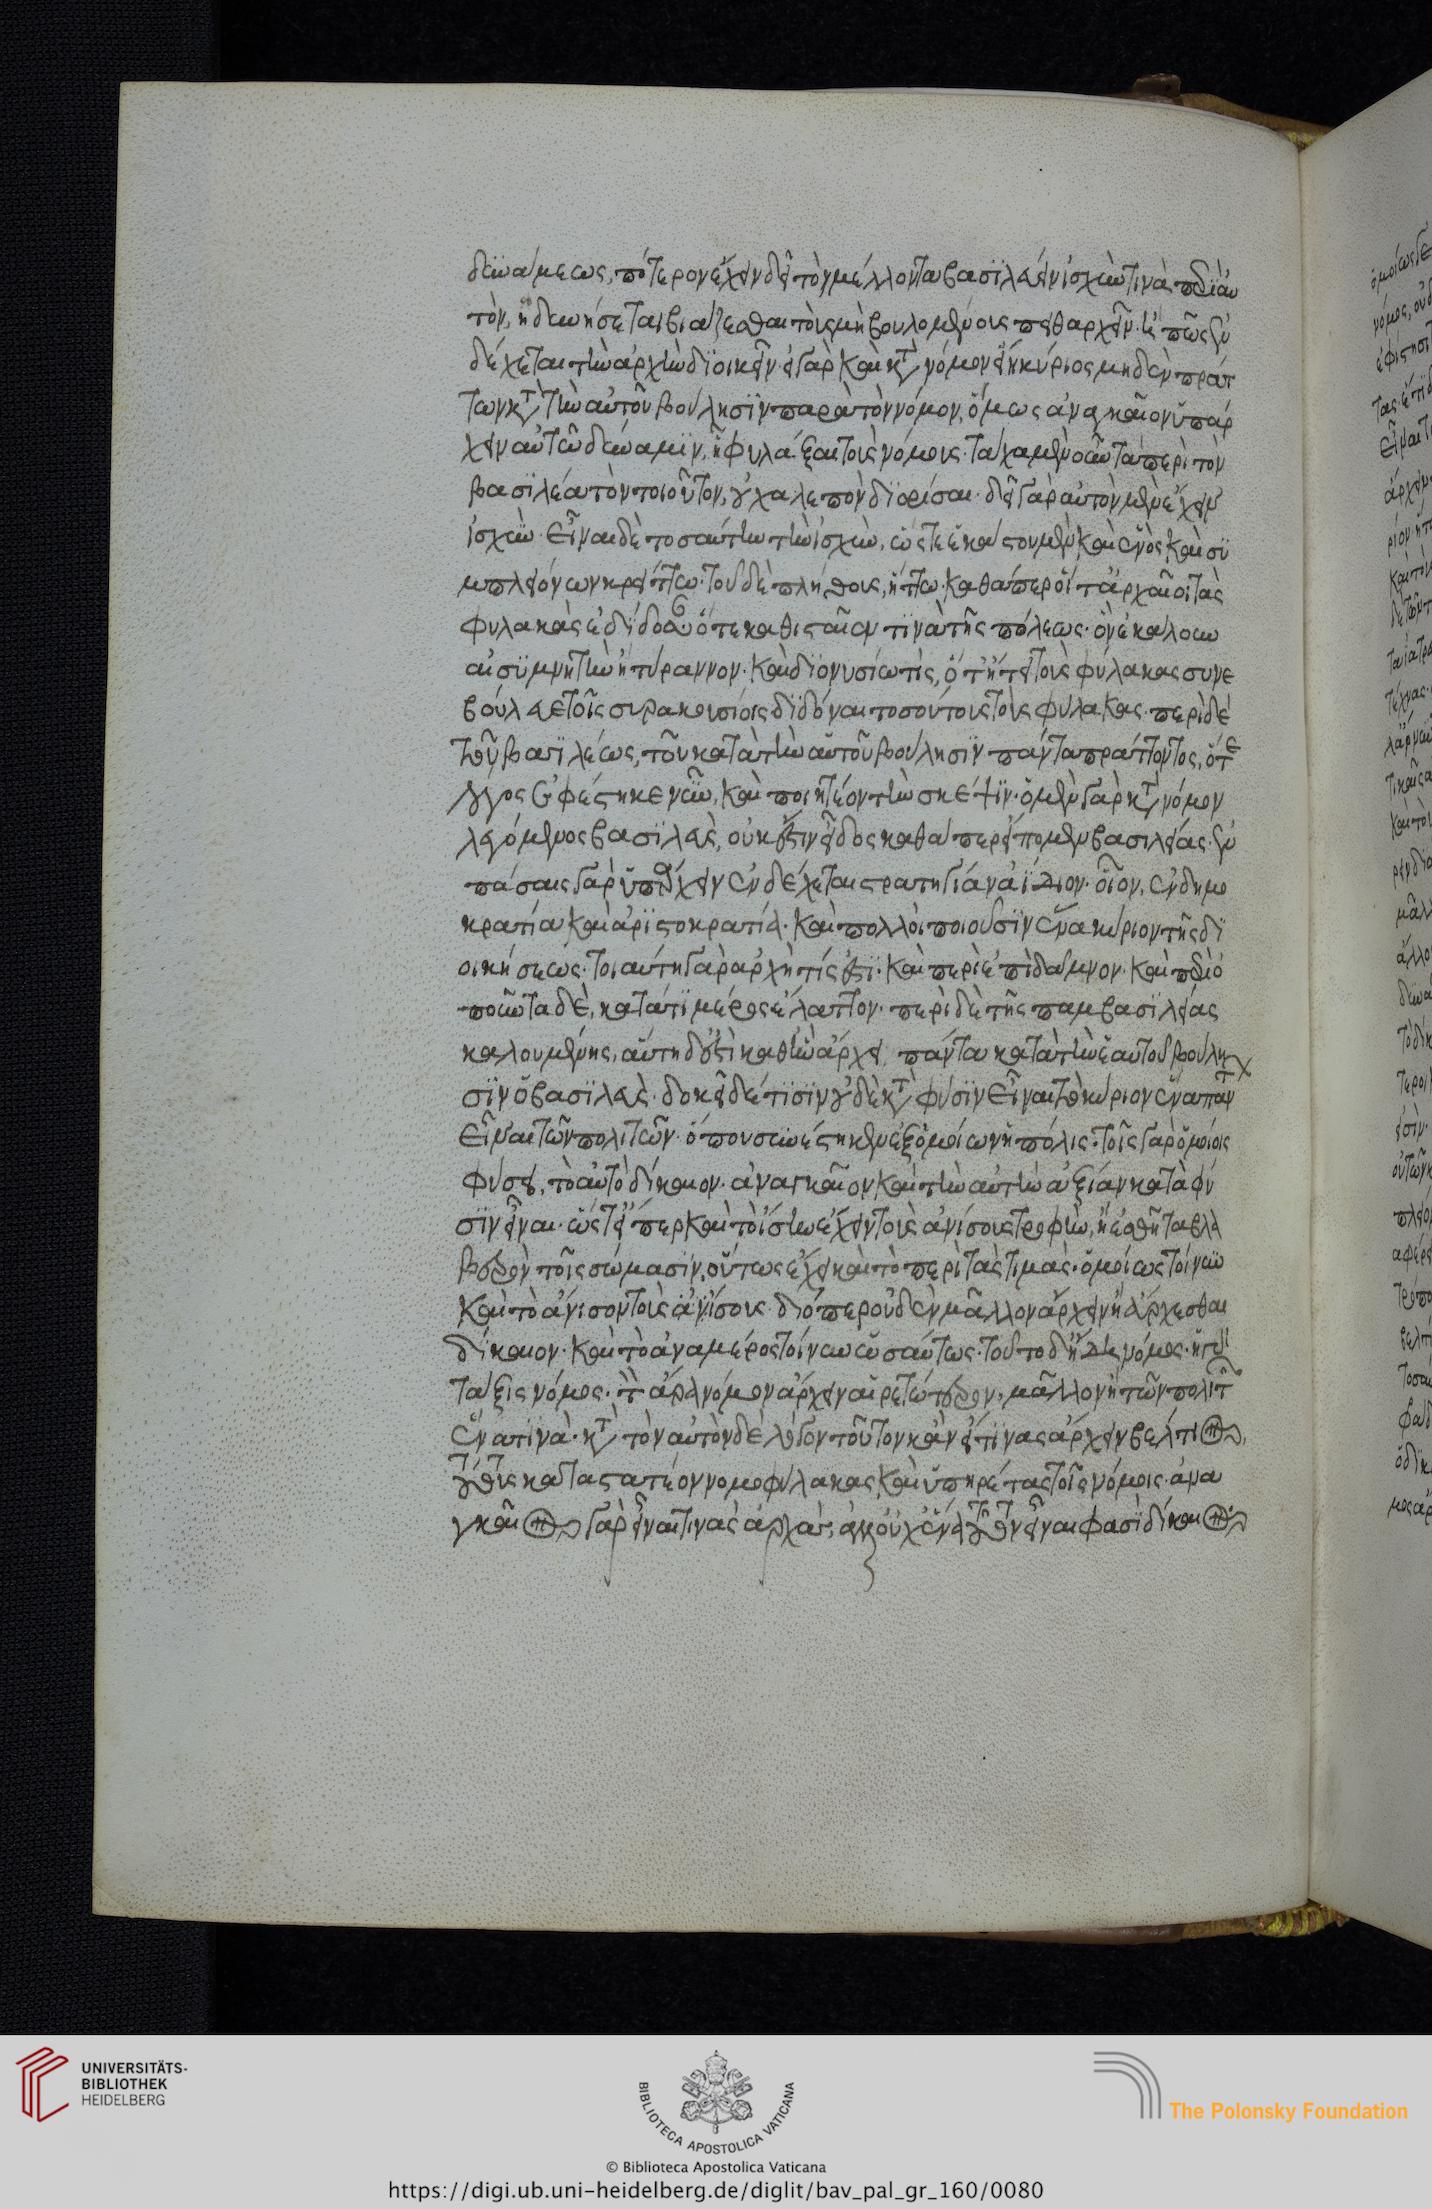 δυνάμεως, πότερον ἔχειν δεῖ τὸν μέλλοντα βασϊλεύειν ἰσχὺν τινὰ περὶ αὐ
τὸν, ᾗ δυνήσεται βιάζεσθαι τοὺς μὴ βουλομένους πειθαρχεῖν· ἢ πῶς ἐν
δέχεται τὴν ἀρχὴν δϊοικεῖν· εἰ γὰρ καὶ κατὰ νόμον εἴη κύριος μηδὲν πράτ
των κατὰ τὴν αὐτοῦ βούλησϊν παρὰ τὸν νόμον, ὅμως ἀναγκαῖον ὑπάρ
χειν αὐτῷ δύναμϊν, ᾗ φυλάξει τοὺς νόμους· τάχα μὲν οὖν τὰ περὶ τὸν
βασϊλέα τὸν τοιοῦτον, οὐ χαλεπὸν διορίσαι· δεῖ γὰρ αὐτὸν μὲν ἔχειν
ἰσχὺν· εἶναι δὲ τοσαύτην τὴν ἰσχὺν, ὥστε ἑκάστου μὲν καὶ ἑνὸς καὶ συ
μπλειόνων κρείττω· τοῦ δὲ πλήθους, ἥττω· καθάπερ οἵ τ' ἀρχαῖοι τὰς
φυλακὰς ἐδίδοσαν ὅτε καθισταῖεν τϊνὰ τῆς πόλεως· ὃν ἐκάλουν
αἰσϋμνήτην ἢ τύραννον· καὶ δϊονυσίῳ τὶς, ὅτ' ᾔτει τοὺς φύλακας συνε
βούλευε τοῖς συρακουσίοις διδόναι τοσούτους τοὺς φύλακας· περὶ δὲ
τοῦ βασϊλέως, τοῦ κατὰ τὴν αὑτοῦ βούλησϊν πάντα πράττοντος, ὅ τε
λόγος ἐφέστηκε νῦν, καὶ ποιητέον τὴν σκέψϊν· ὁ μὲν γὰρ κατὰ νόμον
λεγόμενος βασϊλεὺς, οὐκ ἔστιν εἶδος καθάπερ εἴπομεν βασιλείας· ἐν
πάσαις γὰρ ὑπάρχειν ἐνδέχεται στρατηγίαν ἀΐδιον· οἷον, ἐν δημο
κρατία καὶ ἀρϊστοκρατία· καὶ πολλοὶ ποιοῦσϊν ἕνα κύριον τῆς δϊ
οικήσεως· τοιαύτη γὰρ ἀρχὴ τίς ἐστϊ· καὶ περὶ ἐπίδαμνον· καὶ περὶ ὀ
ποῦντα δὲ, κατά τϊ μέρος ἔλαττον· περὶ δὲ τῆς παμβασϊλείας
καλουμένης, αὕτη δ' ἐστὶ καθ' ἣν ἄρχει πάντα κατὰ τὴν ἑαυτοῦ βούλη
σϊν ὁ βασϊλεὺς· δοκεῖ δέ τϊσϊν οὐδὲ κατὰ φύσϊν εἶναι τὸ κύριον ἕνα πάντων
εἶναι τῶν πολιτῶν· ὅπου συνέστηκεν ἐξ ὁμοίων ἡ πόλις· τοῖς γὰρ ὁμοίοις
φύσει, τὸ αὐτὸ δίκαιον· ἀναγκαῖον καὶ τὴν αὐτὴν ἀξίαν κατὰ φύ
σϊν εἶναι· ὥστ' εἴπερ καὶ τὸ ἴσην ἔχειν τοὺς ἀνίσους τροφὴν, ἢ ἐσθῆτα βλα
βερὸν τοῖς σώμασϊν, οὕτως ἔχει καὶ τὸ περὶ τὰς τιμὰς· ὁμοίως τοίνυν
καὶ τὸ ἄνισον τοὺς ἀνίσους· διόπερ οὐδὲν μᾶλλον ἄρχειν ἢ ἄρχεσθαι
δίκαιον· καὶ τὸ ἀναμέρος τοίνυν ὡσαύτως· τοῦτο δ' ἤδη νόμος· ἡ γὰρ
τάξις νόμος· τὸν ἄρα νόμον ἄρχειν αἱρετώτερον, μᾶλλον ἢ τῶν πολιτῶν
ἕνα τϊνὰ· κατὰ τὸν αὐτὸν δὲ λόγον τοῦτον κἂν εἴ τϊνας ἄρχειν βέλτιον,
τούτους καταστατέον νομοφύλακας καὶ ὑπηρέτας τοῖς νόμοις· ἀνα
γκαῖον γὰρ εἶναι τινὰς ἀρχὰς, ἀλλ' οὐχ ἕνα τοῦτον εἶναι φασὶ δίκαιον
UNIVERSITÄTS-
BIBLIOTHEK
HEIDELBERG
BIBLIOTECA APOSTOLICA VATICANA
The Polonsky Foundation
© Biblioteca Apostolica Vaticana
https://digi.ub.uni-heidelberg.de/diglit/bav_pal_gr_160/0080